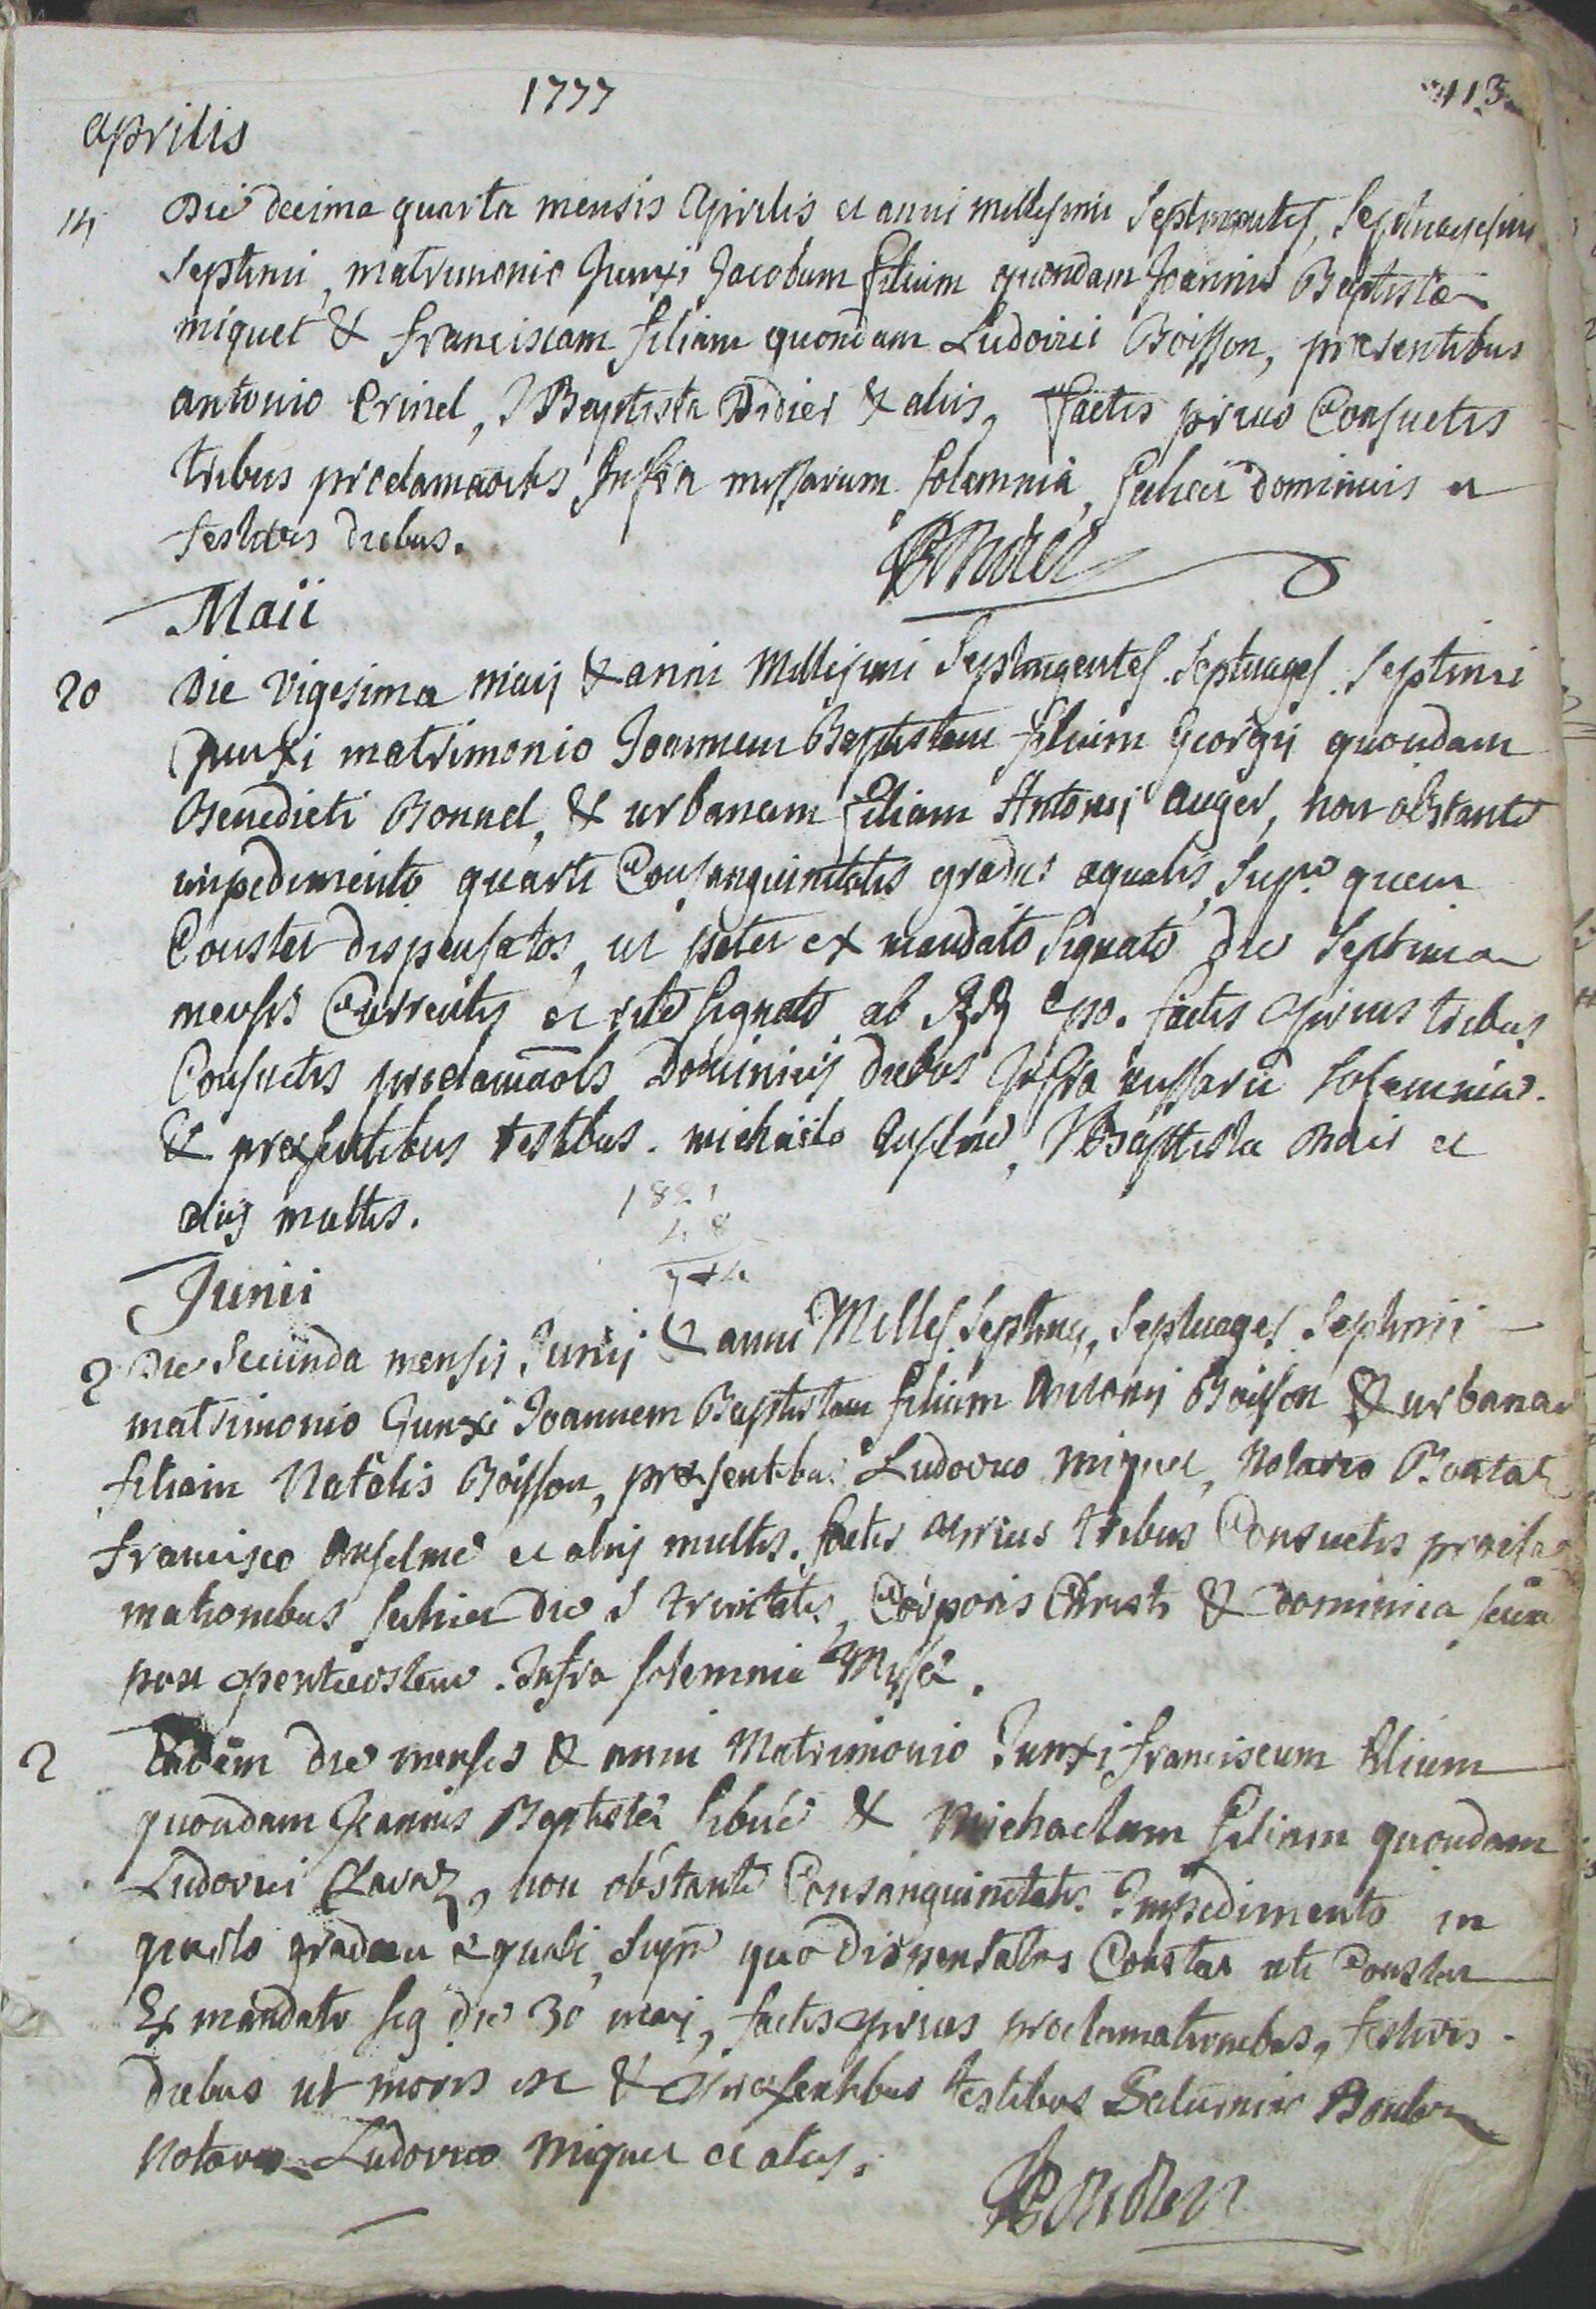 1777
113
aprilis
14 Die decima quarta mensis Aprilis et anni millesimi Septingentes, Septuagesimi
Septimi, matrimonio Junxi Jacobum filium quondam Joannis Baptistæ
miquet & franciscam filiam quondam Ludovici Boisson, præsentibus
antonio Crinel, J Baptista Didier & aliis, factis prius Consuetis
tribus proclamaoibs Infra missarum solemnia, scilicet dominicis et
festivis diebus.
Maii
20 Die vigesima maij & anni Millesimi Septingentes. Septuages. Septimi
Junxi matrimonio Joannem Baptistam filium Georgij quondam
Benedicti Bonnel, & urbanam filiam Antonij auger, non obstante
impedimento quarti Consanguinitatis gradus æqualis, sup quem
Constat dispensatos, ut patet ex mandato signato die septima
mensis Currentis et rite signato ab epo. factis prius tribus
Consuetis proclamaōbs Dominicis diebus Infra missarū solemnia.
& præsentibus testibus. michaele Anselme, J Baptista et
alijs multis.
Junii
2 Die Secunda mensis Junij & anni Milles. Septing, Septuages. Septimi
matrimonio Junxi Joannem Baptistam filium Antonij Boisson & urbanam
filiam Natalis Boisson, præsentibus Ludovico miquet, Notario
francisco Anselme et alijs multis. factis prius tribus Consuetis procla
mationibus scilicet die S trinitatis, Corporis Christi & dominica
post pentecostem. Infra solemnia Missæ.
2 Eadem die mensis & anni Matrimonio Junxi franciscum filium
quondam Joannis Baptistæ Sibué & Michaelam filiam quondam
Ludovici Clavaz, non obstante Consanguinitatis Impedimento in
quarto gradu æquali, sup quo dispensatos Constat uti Constat
Ex mandato sig die 30 maij, factis prius proclamationibus, festivis
diebus ut moris est & præsentibus testibus Saturnino
Notario Ludovico Miquet et alijs.